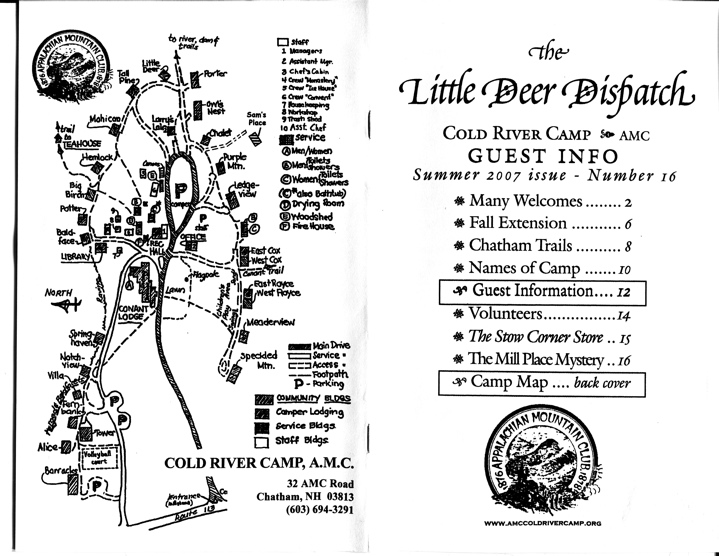 to river, dam & trails
1876 APPALACHIAN MOUNTAIN CLUB 1876
Little Deer
Tall Pine
Porter
Owl's Nest
Mohican
Larry's Laig
Chalet
Sam's Place
trail to TEAHOUSE
Hemlock
Purple Mtn.
Big Bird
P
campers
Ledgeview
Potter
P
staff
Baldface
REC HALL
OFFICE
LIBRARY
East Cox
West Cox
Conant Trail
NORTH
Flagpole
East Royce
West Royce
Lawn
CONANT LODGE
Meaderview
Springhaven
Speckled Mtn.
Notchview
Villa
Fernbank
P
P
Tower
Alice
Volleyball court
Barracks
P
Entrance
Route 113
Staff
1 Managers
2 Assistant Mgr.
3 Chef's Cabin
4 Crew "Monastery"
5 Crew "Ice House"
6 Crew "Convent"
7 Housekeeping
8 Workshop
9 Trash Shed
10 Asst Chef
Service
A Men/Women Toilets
B Men Showers
C Women Toilets Showers
(C also Bathtub)
D Drying Room
E Woodshed
F Fire House
Main Drive
Service "
Access "
Footpath
P - Parking
COMMUNITY BLDGS
Camper Lodging
Service Bldgs.
Staff Bldgs.
COLD RIVER CAMP, A.M.C.
32 AMC Road
Chatham, NH 03813
(603) 694-3291
the
Little Deer Dispatch
COLD RIVER CAMP AMC
GUEST INFO
Summer 2007 issue - Number 16
Many Welcomes ........ 2
Fall Extension ............ 6
Chatham Trails .......... 8
Names of Camp ....... 10
Guest Information.... 12
Volunteers................14
The Stow Corner Store .. 15
The Mill Place Mystery .. 16
Camp Map .... back cover
1876 APPALACHIAN MOUNTAIN CLUB 1876
WWW.AMCCOLDRIVERCAMP.ORG